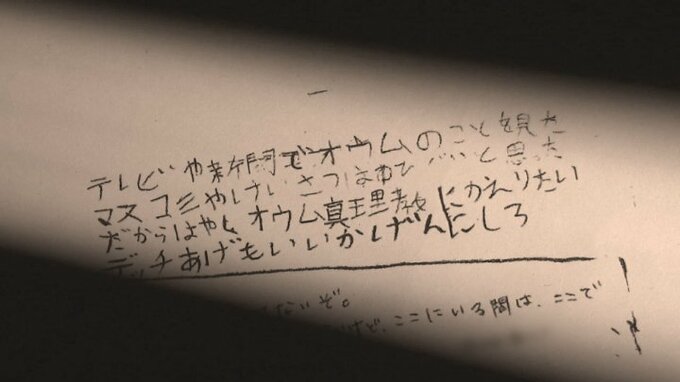 テレビや新聞でオウムのこと観た
マスコミやけいさつはあひどいと思った
だからはやくオウム真理教にかえりたい
デッチあげもいいかげんにしろ
ないぞ。
けど、ここにいる間は、ここで